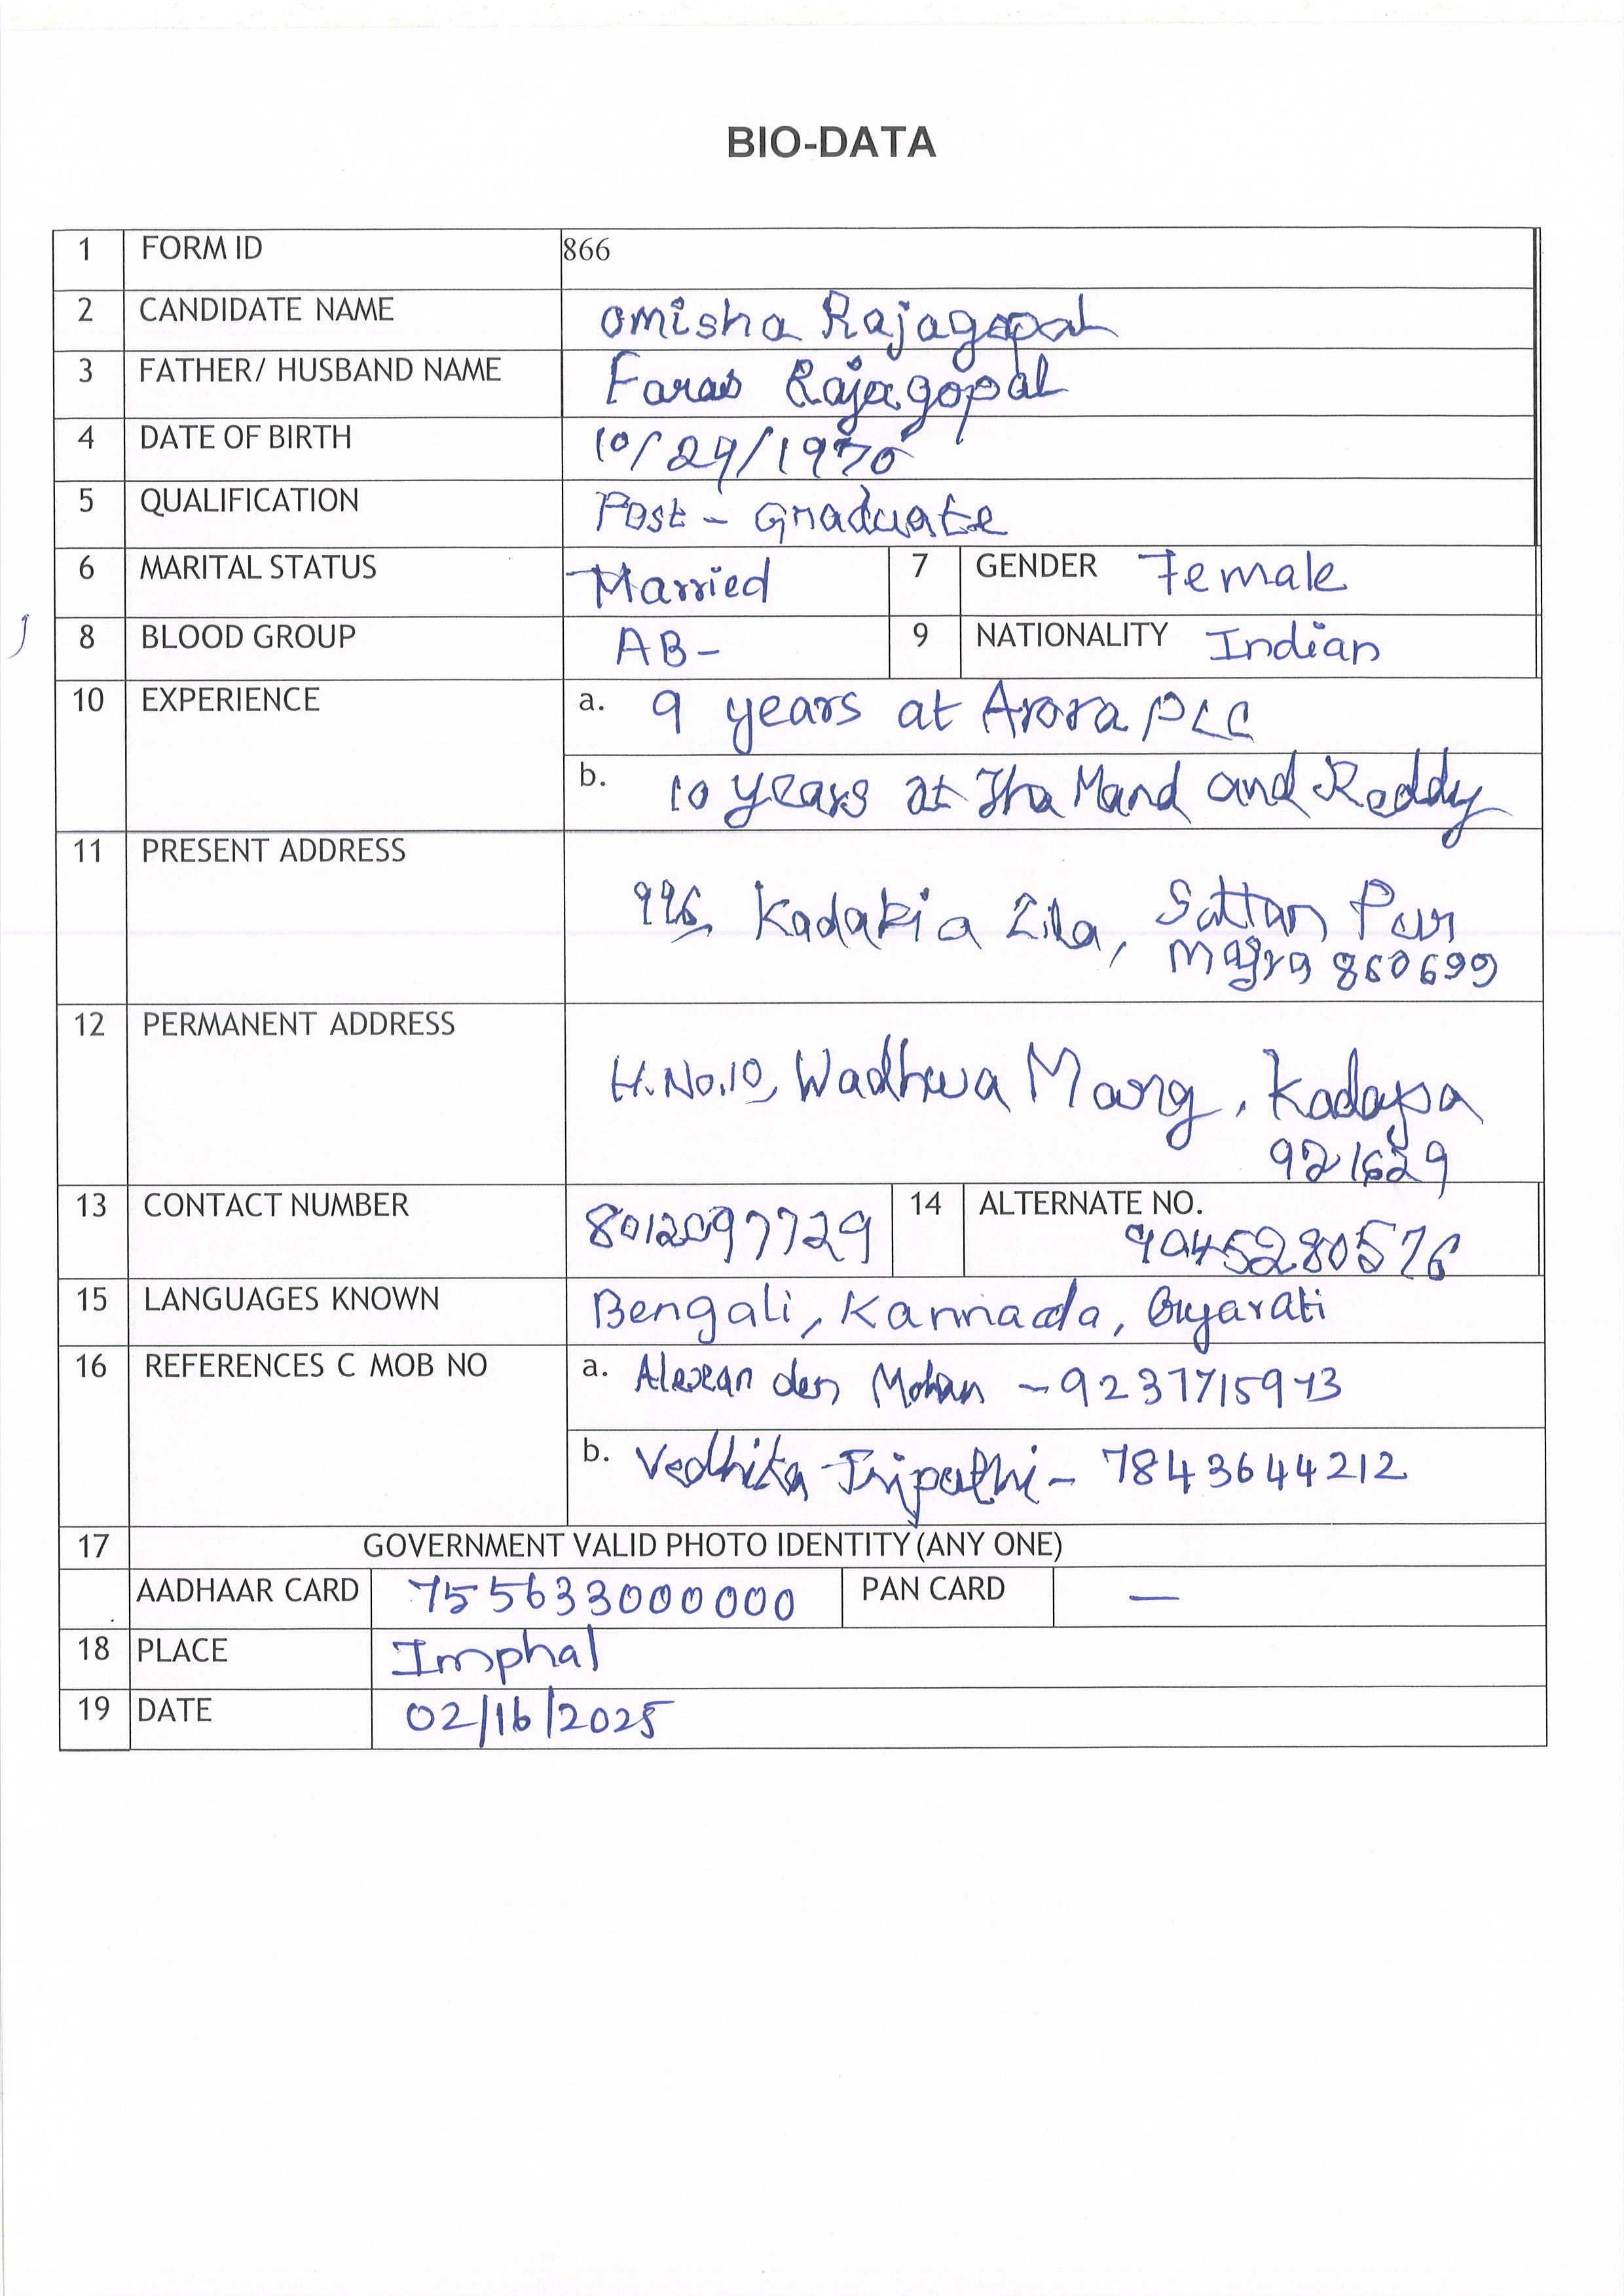 BIO-DATA
1 FORM ID 866
2 CANDIDATE NAME Omisha Rajagopal
3 FATHER/ HUSBAND NAME Faras Rajagopal
4 DATE OF BIRTH 10/29/1970
5 QUALIFICATION Post - Graduate
6 MARITAL STATUS Married 7 GENDER Female
8 BLOOD GROUP AB- 9 NATIONALITY Indian
10 EXPERIENCE a. 9 years at Arora PLC
b. 10 years at Jha Mand and Reddy
11 PRESENT ADDRESS
Kadakia Zila, Sattan Pur
Majra 860699
12 PERMANENT ADDRESS
H.No.10, Wadhwa Marg, Kadapa
921629
13 CONTACT NUMBER 8012097729 14 ALTERNATE NO.
9045280576
15 LANGUAGES KNOWN Bengali, Kannada, Gujarati
16 REFERENCES C MOB NO a. Alexan der Mohan - 9237715943
b. Vedhika Tripathi - 7843644212
17 GOVERNMENT VALID PHOTO IDENTITY (ANY ONE)
AADHAAR CARD 755633000000 PAN CARD —
18 PLACE Imphal
19 DATE 02/16/2025